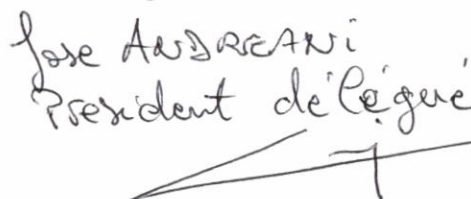 Jose ANDREANI
President délégué